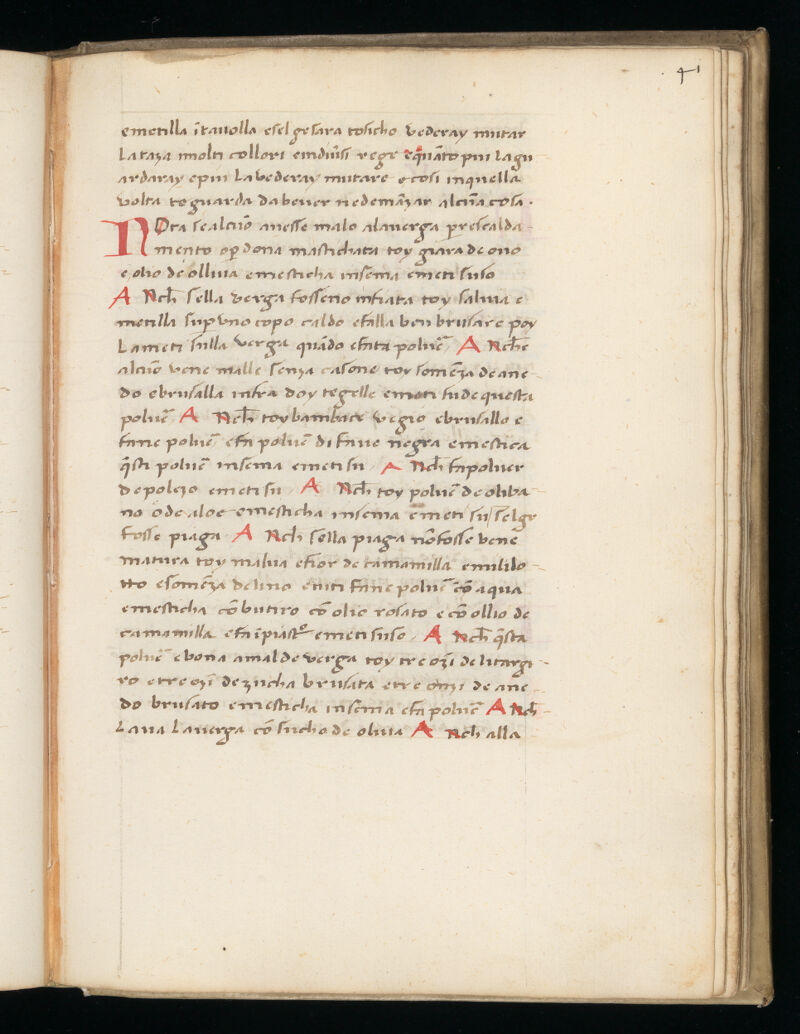 41
emetilla ĩ tauolla esel gesara tosicho vederay mutar
La taza molti collori eindiuisi rege equãto piu Lagu
ardaray epiu La vederay mutare ecosi inquella
volta teguarda dabeuer nedemãzar alcũa cosa .
NOta sealcũo auesse malo alauerga perescalda-
mento oper dona mastichata toy giara de ouo
e olio de olliua emesticha insema emeti suso
ANch sella verga fosseno infiata toy saluia e
metilla sup vno copo caldo efalla ben brusare poy
Lameti sulla verga quãdo efata poluē ANche
alcũo vene malle senza casone toy somēza deane-
do ebrusalla infra doy tegelle emeti su de questa
poluē ANch toy bambace vegio ebrusallo e
fane poluē efa poluē di faue negra emestica
q̃sti poluē insema emeti su ANch fa poluer
de polezo emeti su ANch toy poluē de oliba-
no o de aloe emesticha insema emeti su / selge
fosse piaga ANch sella piaga nõ fosse bene
matura toy malua efior de camamilla emililo-
tto esomēza delino etuti fane poluē cõ aqua
emesticha cõ butiro cõ olio rosato e cõ ollio de
camamilla efa ĩpiastro emeti suso ANch q̃sta
poluē ebona amal de verga toy tre ozi de litargi-
ro etre ozi de zucha brusata etre onzi de ane-
do brusato emesticha insema efa poluē ANch-
Laua Lauerga cõ sucho de oliuia ANch alla